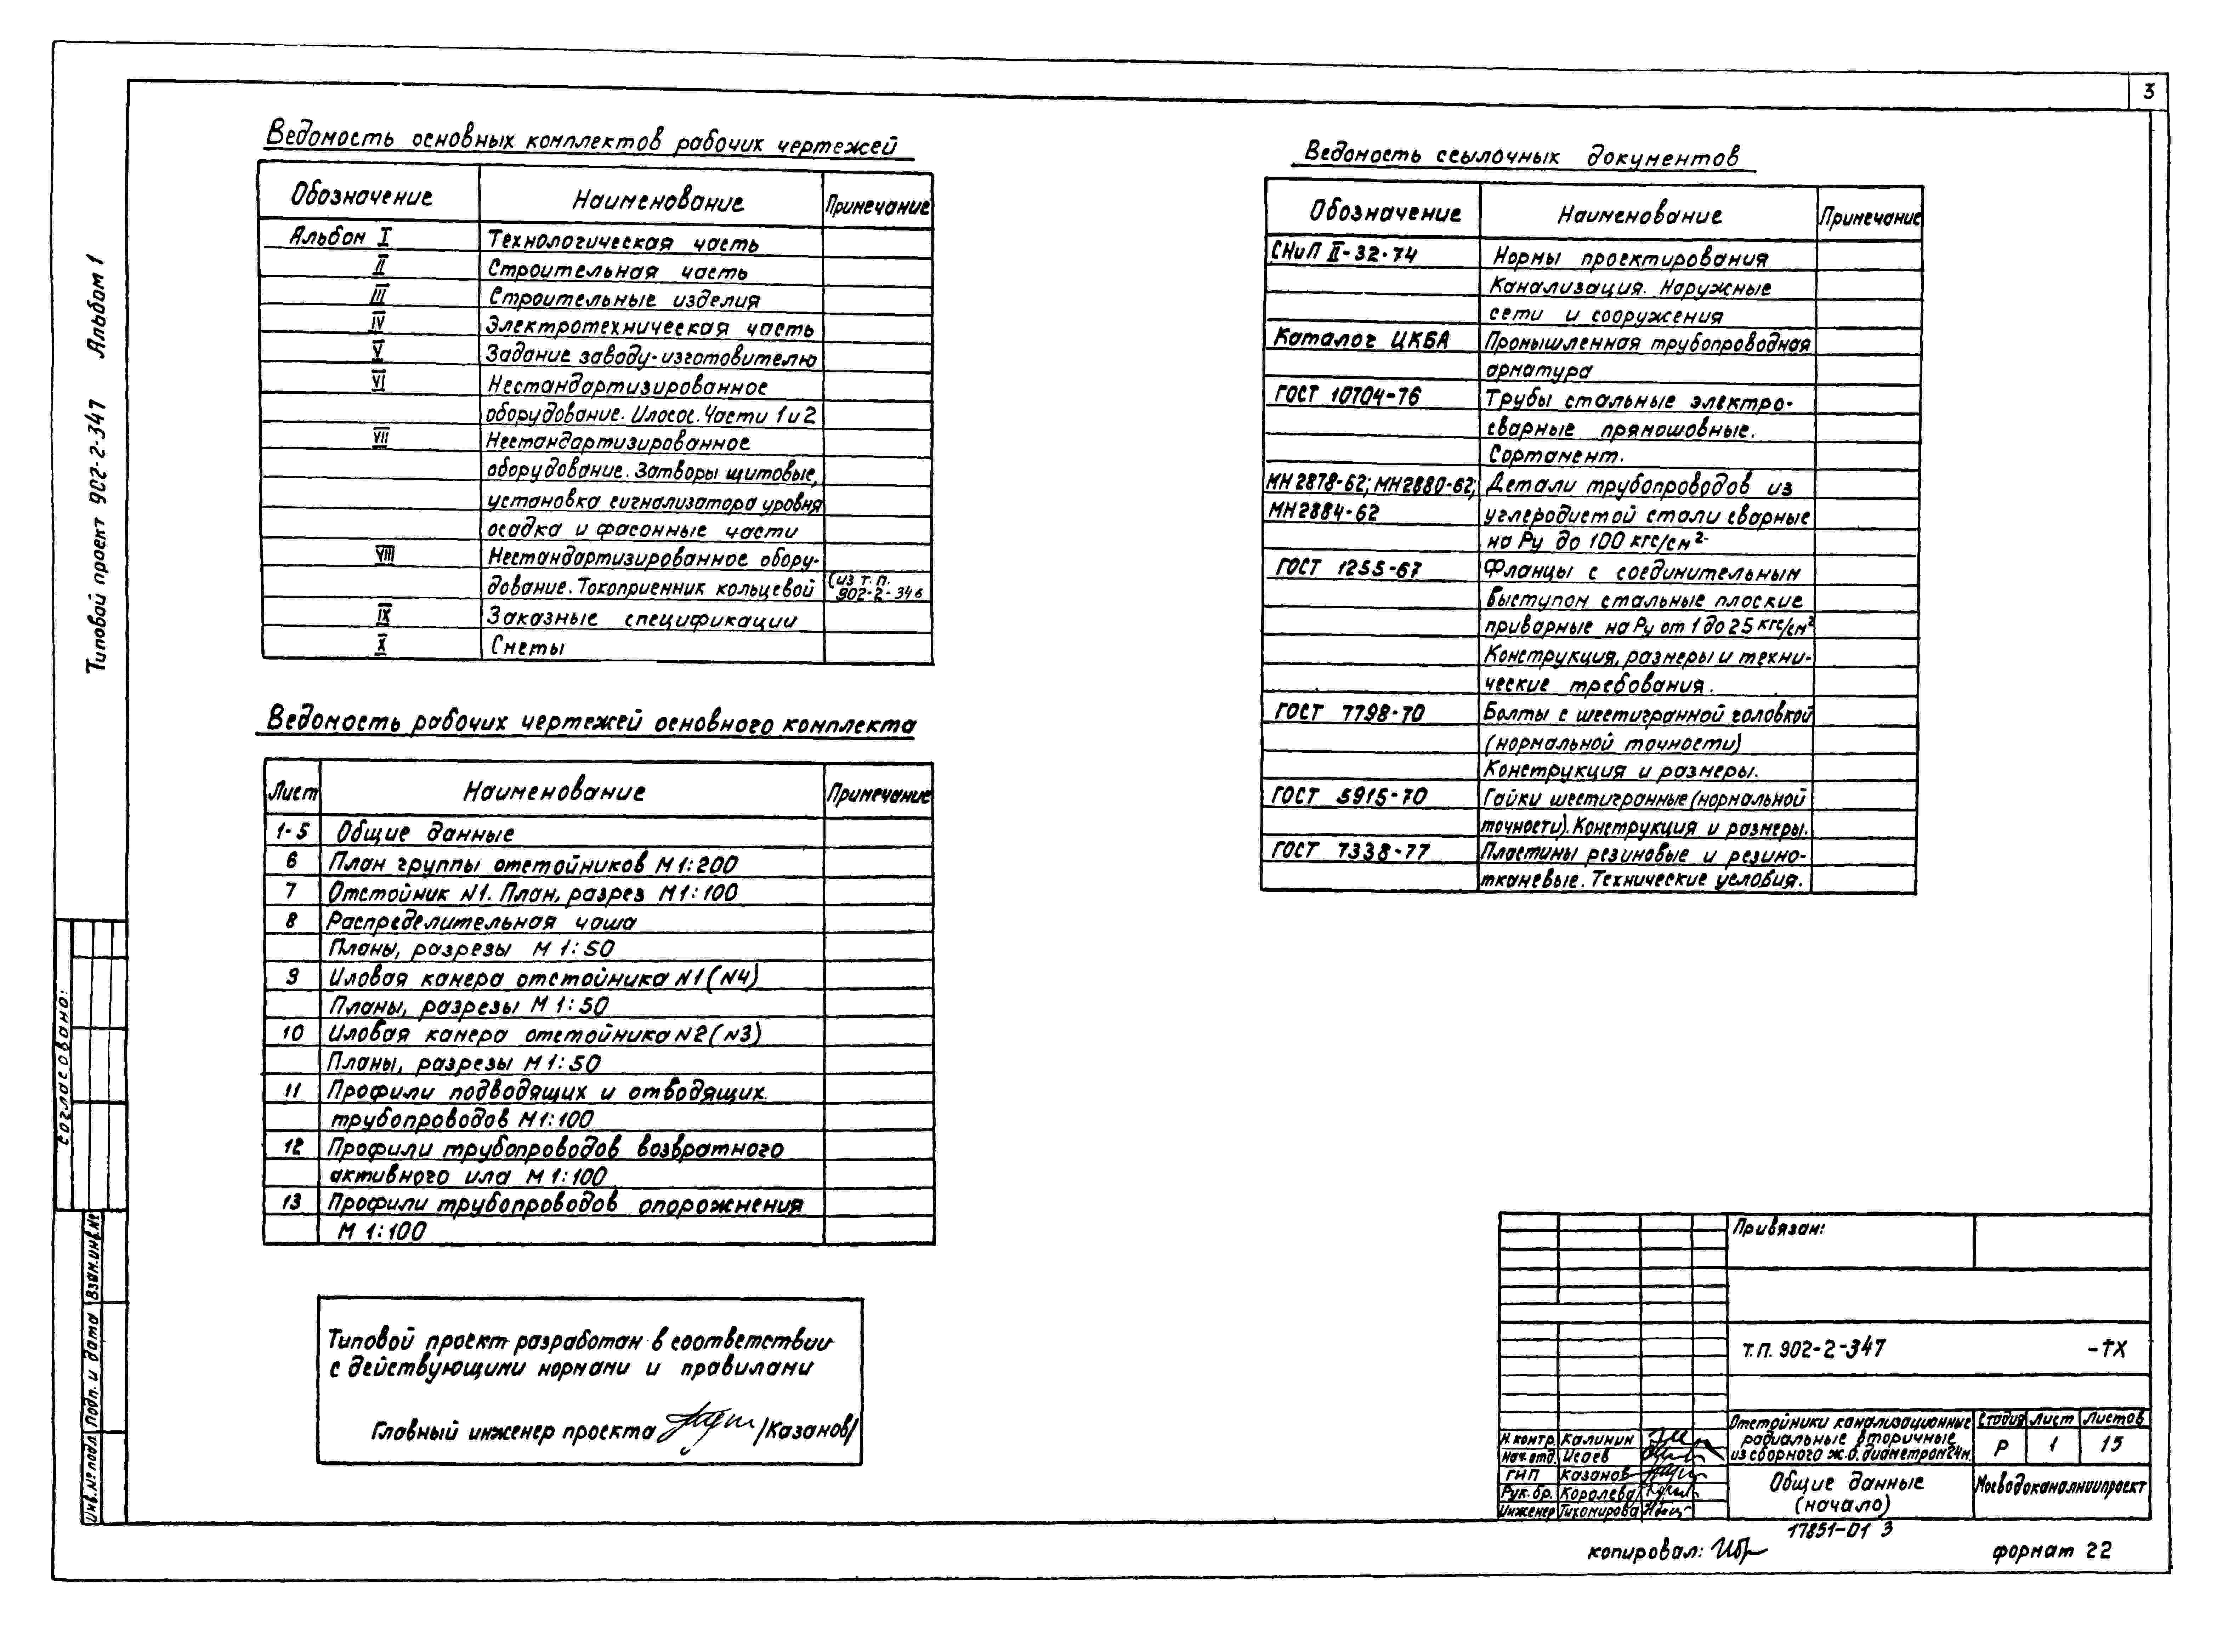 3
Типовой проект 902-2-347 Альбом 1
Ведомость основных комплектов рабочих чертежей
Обозначение Наименование Примечание
Альбом I Технологическая часть
II Строительная часть
III Строительные изделия
IV Электротехническая часть
V Задание заводу-изготовителю
VI Нестандартизированное
оборудование. Илосос. Части 1 и 2
VII Нестандартизированное
оборудование. Затворы щитовые,
установка сигнализатора уровня
осадка и фасонные части
VIII Нестандартизированное обору-
дование. Токоприемник кольцевой (из т.п. 902-2-346
IX Заказные спецификации
X Сметы
Ведомость рабочих чертежей основного комплекта
Лист Наименование Примечание
1-5 Общие данные
6 План группы отстойников М 1:200
7 Отстойник N1. План, разрез М 1:100
8 Распределительная чаша
Планы, разрезы М 1:50
9 Иловая камера отстойника N1 (N4)
Планы, разрезы М 1:50
10 Иловая камера отстойника N2 (N3)
Планы, разрезы М 1:50
11 Профили подводящих и отводящих
трубопроводов М1:100
12 Профили трубопроводов возвратного
активного ила М 1:100
13 Профили трубопроводов опорожнения
М 1:100
Типовой проект разработан в соответствии
с действующими нормами и правилами
Главный инженер проекта /Казанов/
Ведомость ссылочных документов
Обозначение Наименование Примечание
СНиП II-32-74 Нормы проектирования
Канализация. Наружные
сети и сооружения
Каталог ЦКБА Промышленная трубопроводная
арматура
ГОСТ 10704-76 Трубы стальные электро-
сварные прямошовные.
Сортамент.
МН2878-62; МН2880-62; Детали трубопроводов из
МН2884-62 углеродистой стали сварные
на Ру до 100 кгс/см²
ГОСТ 1255-67 Фланцы с соединительным
выступом стальные плоские
приварные на Ру от 1 до 25 кгс/см²
Конструкция, размеры и техни-
ческие требования.
ГОСТ 7798-70 Болты с шестигранной головкой
(нормальной точности)
Конструкция и размеры.
ГОСТ 5915-70 Гайки шестигранные (нормальной
точности). Конструкция и размеры.
ГОСТ 7338-77 Пластины резиновые и резино-
тканевые. Технические условия.
Согласовано:
Инв. № подл. Подп. и дата Взам. инв. №
Привязан:
Т.П. 902-2-347 -ТХ
Отстойники канализационные
радиальные вторичные
из сборного ж.б. диаметром 24м.
Стадия Лист Листов
Р 1 15
Н. контр. Калинин
Нач. отд. Исаев
ГИП Казанов
Рук. бр. Королева
Инженер Тихомирова
Общие данные
(начало)
Мосводоканалниипроект
17851-01 3
копировал: формат 22